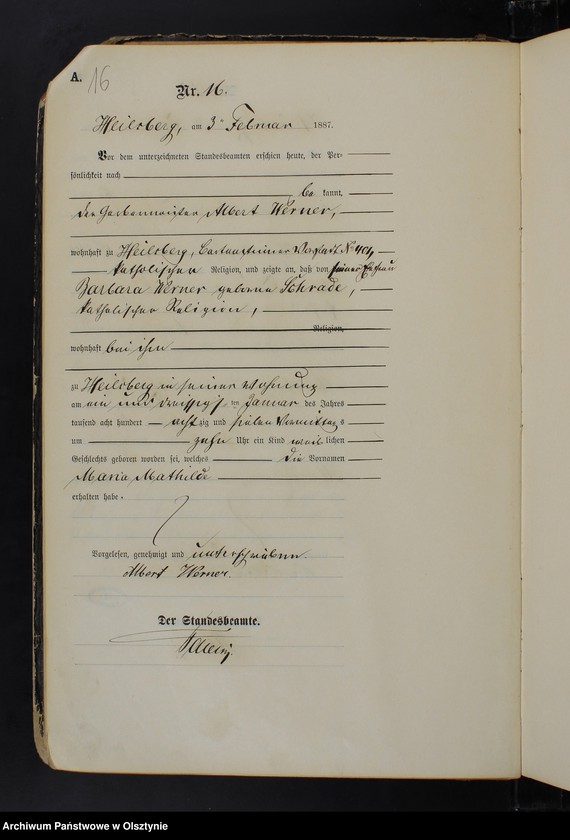 A. 16
Nr. 16.
Heilsberg, am 3 Februar 1887.
Vor dem unterzeichneten Standesbeamten erschien heute, der Per-
sönlichkeit nach
be kannt,
der Albert Werner,
wohnhaft zu Heilsberg, № 404
katholischer Religion, und zeigte an, daß von seiner Ehefrau
Barbara Werner geborne Schrade,
katholischer Religion,
Religion,
wohnhaft bei ihm
zu Heilsberg in seiner Wohnung
am ein und dreissigst ten Januar des Jahres
tausend acht hundert acht zig und sieben Vormittags
um zehn Uhr ein Kind weib lichen
Geschlechts geboren worden sei, welches die Vornamen
Maria Mathilde
erhalten habe.
Vorgelesen, genehmigt und unterschrieben
Albert Werner.
Der Standesbeamte.
Archiwum Państwowe w Olsztynie